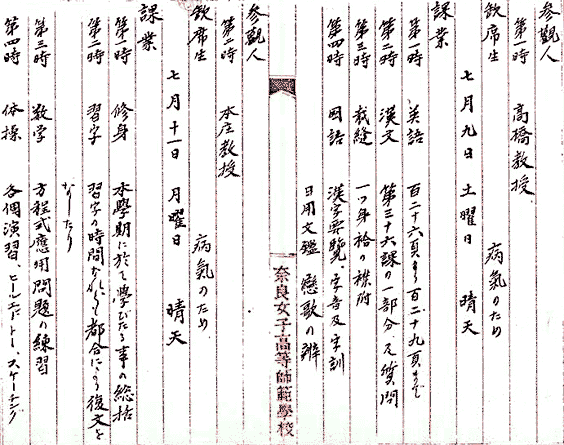 参観人
第一時 高橋教授、
欠席生 病気のため
七月九日 土曜日 晴天
課業
第一時 英語 百二十六頁より百二十九頁まで
第二時 漢文 第三十六課の一部分及質問
第三時 裁縫 一つ身袷の襟附
第四時 国語 漢字要覧、字音及字訓
日用文鑑 恋歌の辨
奈良女子高等師範學校
参観人
第二時 本庄教授
欠席生 病氣のため
七月十一日 月曜日 晴天
課業
第一時 修身 本學期に於て學びたる事の総括
第二時 習字 習字の時間なれども都合により復文を
なしたり
第三時 数学 方程式應用問題の練習
第四時 体操 各個演習、ヒールエンドトー、スケーチング